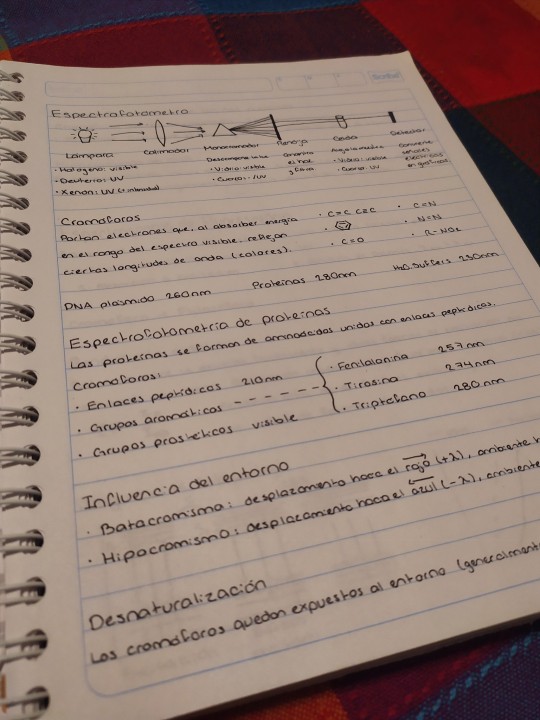 Espectrofotómetro
Lámpara Colimador Monocromador Rendija Celda Detector
· Halógeno: visible
· Deuterio: UV
· Xenón: UV
Descompone la luz
· Vidrio: visible
· Cuarzo: UV
el haz
· Vidrio: visible
· Cuarzo: UV
Convierte
señales
eléctricas
en gráficas
Cromóforos
Portan electrones que, al absorber energía
en el rango del espectro visible, reflejan
ciertas longitudes de onda (colores).
· C=C C≡C
· C=O
· C=N
· N=N
· R-NO₂
DNA plásmido 260nm Proteínas 280nm
Espectrofotometría de proteínas
Las proteínas se forman de aminoácidos unidos con enlaces peptídicos.
Cromóforos:
· Enlaces peptídicos 210nm
· Grupos aromáticos - - - - - -
· Grupos prostéticos visible
· Fenilalanina 257nm
· Tirosina 274nm
· Triptofano 280nm
Influencia del entorno
· Batocromismo: desplazamiento hacia el rojo (+λ), ambiente
· Hipocromismo: desplazamiento hacia el azul (-λ), ambiente
Desnaturalización
Los cromóforos quedan expuestos al entorno (generalmente